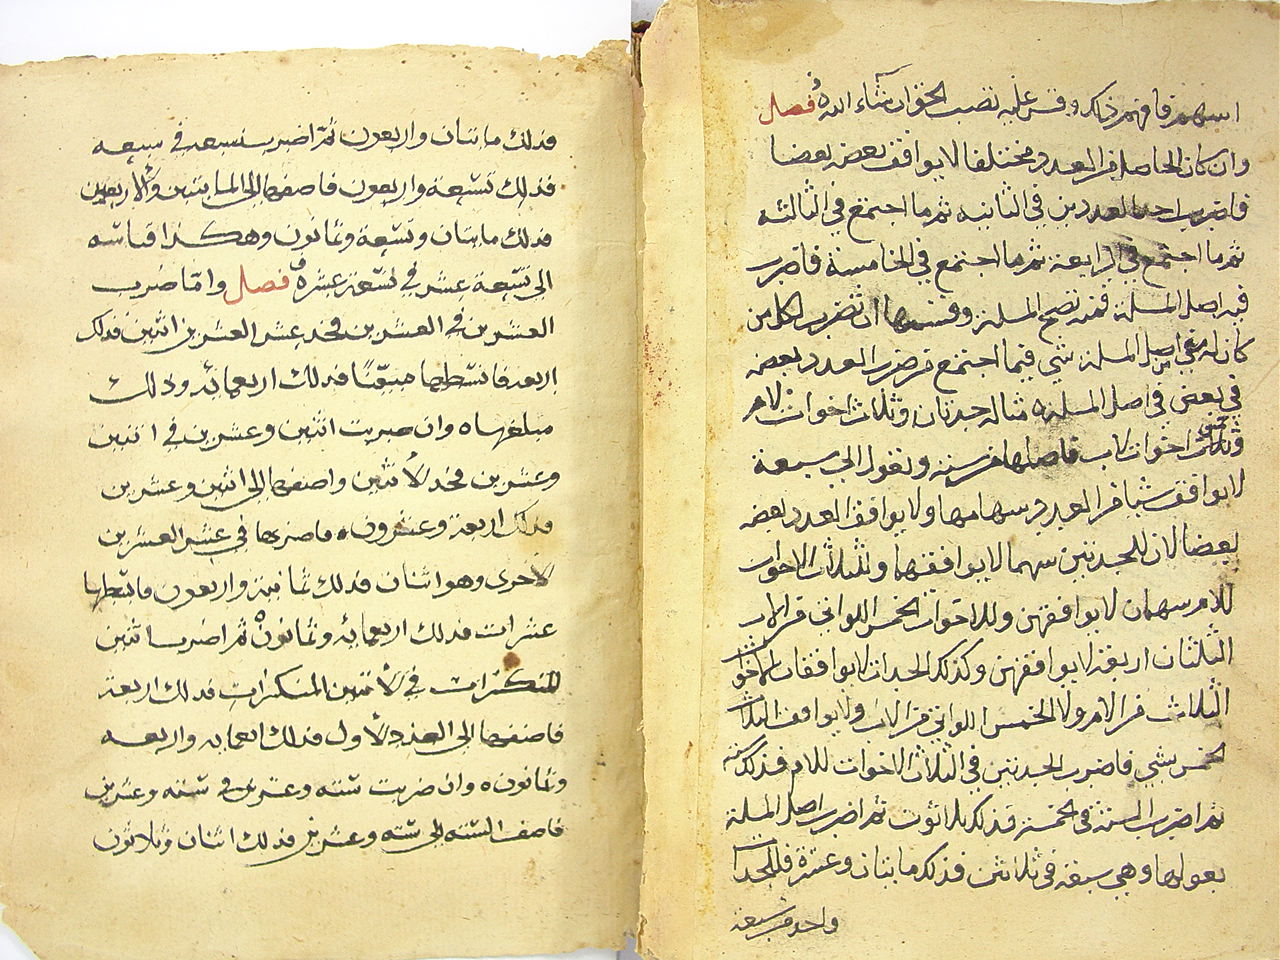 اسهم فافهم ذلك وقس عليه تصب الحق ان شاء الله فصل
وان كان الحاصل من العدد مختلفا لا يوافق بعضه بعضا
فاضرب احد العددين في الثانيه ثم ما اجتمع في الثالثة
ثم ما اجتمع في الرابعة ثم ما اجتمع في الخامسة فاضرب
فيه اصل المسلة فمنه تصح المسلة وقسمها ان تضرب لكل من
كان له في اصل المسلة شي فيما اجتمع من ضرب العدد بعضه
في بعض في اصل المسلة مثاله جدتان وثلاث اخوات لام
وخمس اخوات لاب فاصلها من سته وتعول الى سبعة
لا يوافق شيا من العدد سهامها ولا يوافق العدد بعضه
بعضا لان للجدتين سهما لا يوافقهما وللثلاث الاخوات
للام سهمان لا يوافقهن وللاخوات الخمس اللواتي من الاب
الثلثان اربعة لا يوافقهن وكذلك الجدات لا يوافقان الاخوات
الثلاث من الام ولا الخمس اللواتي من الاب ولا يوافق الثلاث
الخمس بشي فاضرب الجدتين في الثلاث الاخوات للام فذلك سته
ثم اضرب الستة في الخمسة فذلك ثلاثون ثم اضرب اصل المسلة
بعولها وهي سبعة في ثلاثين فذلك مايتان وعشرة فللجدات
واحد من سبعه
فذلك مايتان واربعون ثم اضرب سبعه في سبعه
فذلك تسعة واربعون فاضفها الى المايتين والاربعين
فذلك مايتان وتسعة وثمانون وهكذا قياسه
الى تسعة عشر في تسعة عشر فصل واما ضرب
العشرين في العشرين فخد عشر العشرين اثنين فذلك
اربعة فابسطها مييًا فذلك اربعمائه وذلك
مبلغها وان ضربت اثنين وعشرين في اثنين
وعشرين فخذ الاثنين واضفها الى اثنين وعشرين
فذلك اربعة وعشرون فاضربها في عشر العشرين
الاخرى وهو اثنان فذلك ثمانية واربعون فابسطها
عشرات فذلك اربعمائه وثمانون ثم اضرب اثنين
المنكسرات في الاثنين المنكسرات فذلك اربعة
فاضفها الى العدد الاول فذلك اربعمايه واربعه
وثمانون وان ضربت سته وعشرين في سته وعشرين
فاضف السته الى سته وعشرين فذلك اثنان وثلاثون